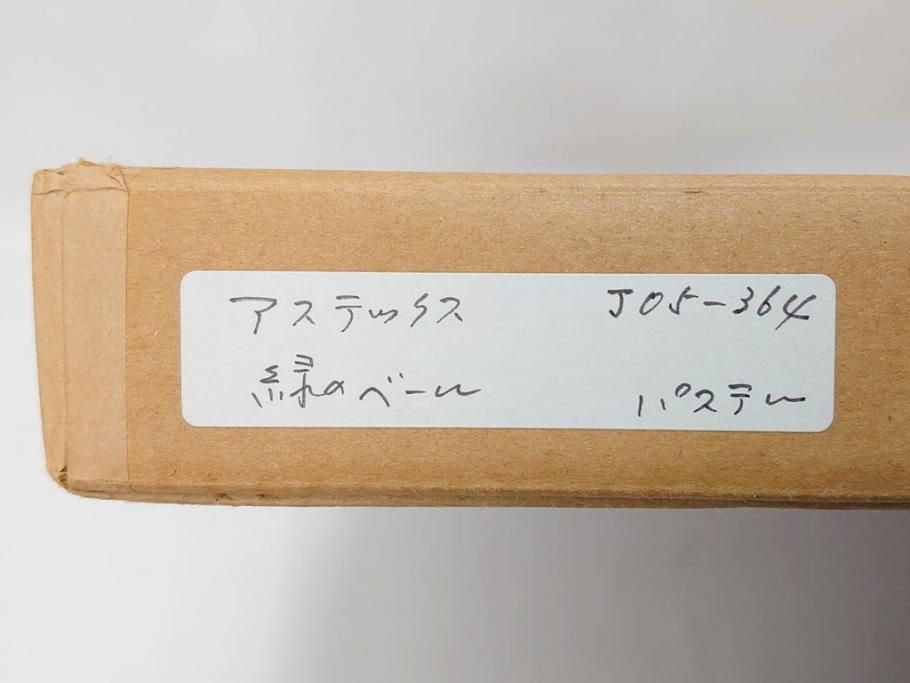 アステックス J05-364
緑のベール パステル